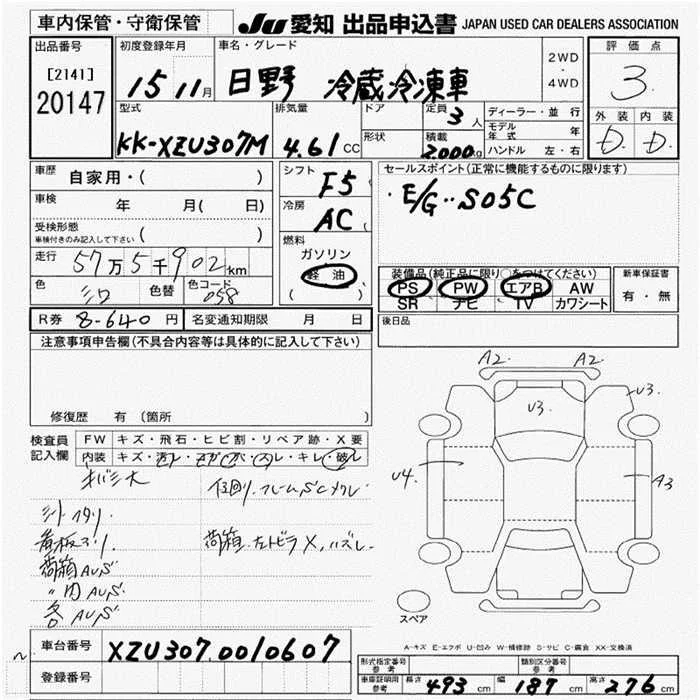 車内保管・守衛保管
JU 愛知 出品申込書 JAPAN USED CAR DEALERS ASSOCIATION
出品番号
[2141]
20147
初度登録年月
15 11月
車名・グレード
日野 冷蔵冷凍車
2WD
・
4WD
評価点
3
外装 内装
D D
型式
KK-XZU307M
排気量
4.61 CC
ドア
形状
定員 3人
積載 2.000kg
ディーラー・並行
モデル年式 年
ハンドル 左・右
車歴 自家用・( )
車検 年 月( 日)
受検形態
車検付きのみ記入して下さい ( )
走行 57万5千902km
色 シロ 色替 色コード 058
シフト F5
冷房 AC
燃料
ガソリン
軽油
( )
セールスポイント(正常に機能するものに限ります)
・E/G‥S05C
装備品(純正品に限り○をつけてください)
PS PW エアB AW
SR ナビ TV カワシート
新車保証書
有・無
R券 8-640円 名変通知期限 月 日
後日品
注意事項申告欄(不具合内容等は具体的に記入して下さい)
修復歴 有(箇所
検査員記入欄
FW キズ・飛石・ヒビ割・リペア跡・X要
内装 キズ・汚レ・コゲ・スレ・キレ・破レ
シート
看板
荷箱
〃内
各
荷箱 左トビラ X. ハズレ
A2. A2.
U3.
U3.
U4
A3
スペア
A-キズ E-エクボ U-凹み W-補修跡 S-サビ C-腐食 XX-交換済
車台番号 XZU307.0010607
登録番号
形式指定番号 参考 類別区分番号 参考
車庫証明用 参考 長さ 493cm 幅 187cm 高さ 276cm